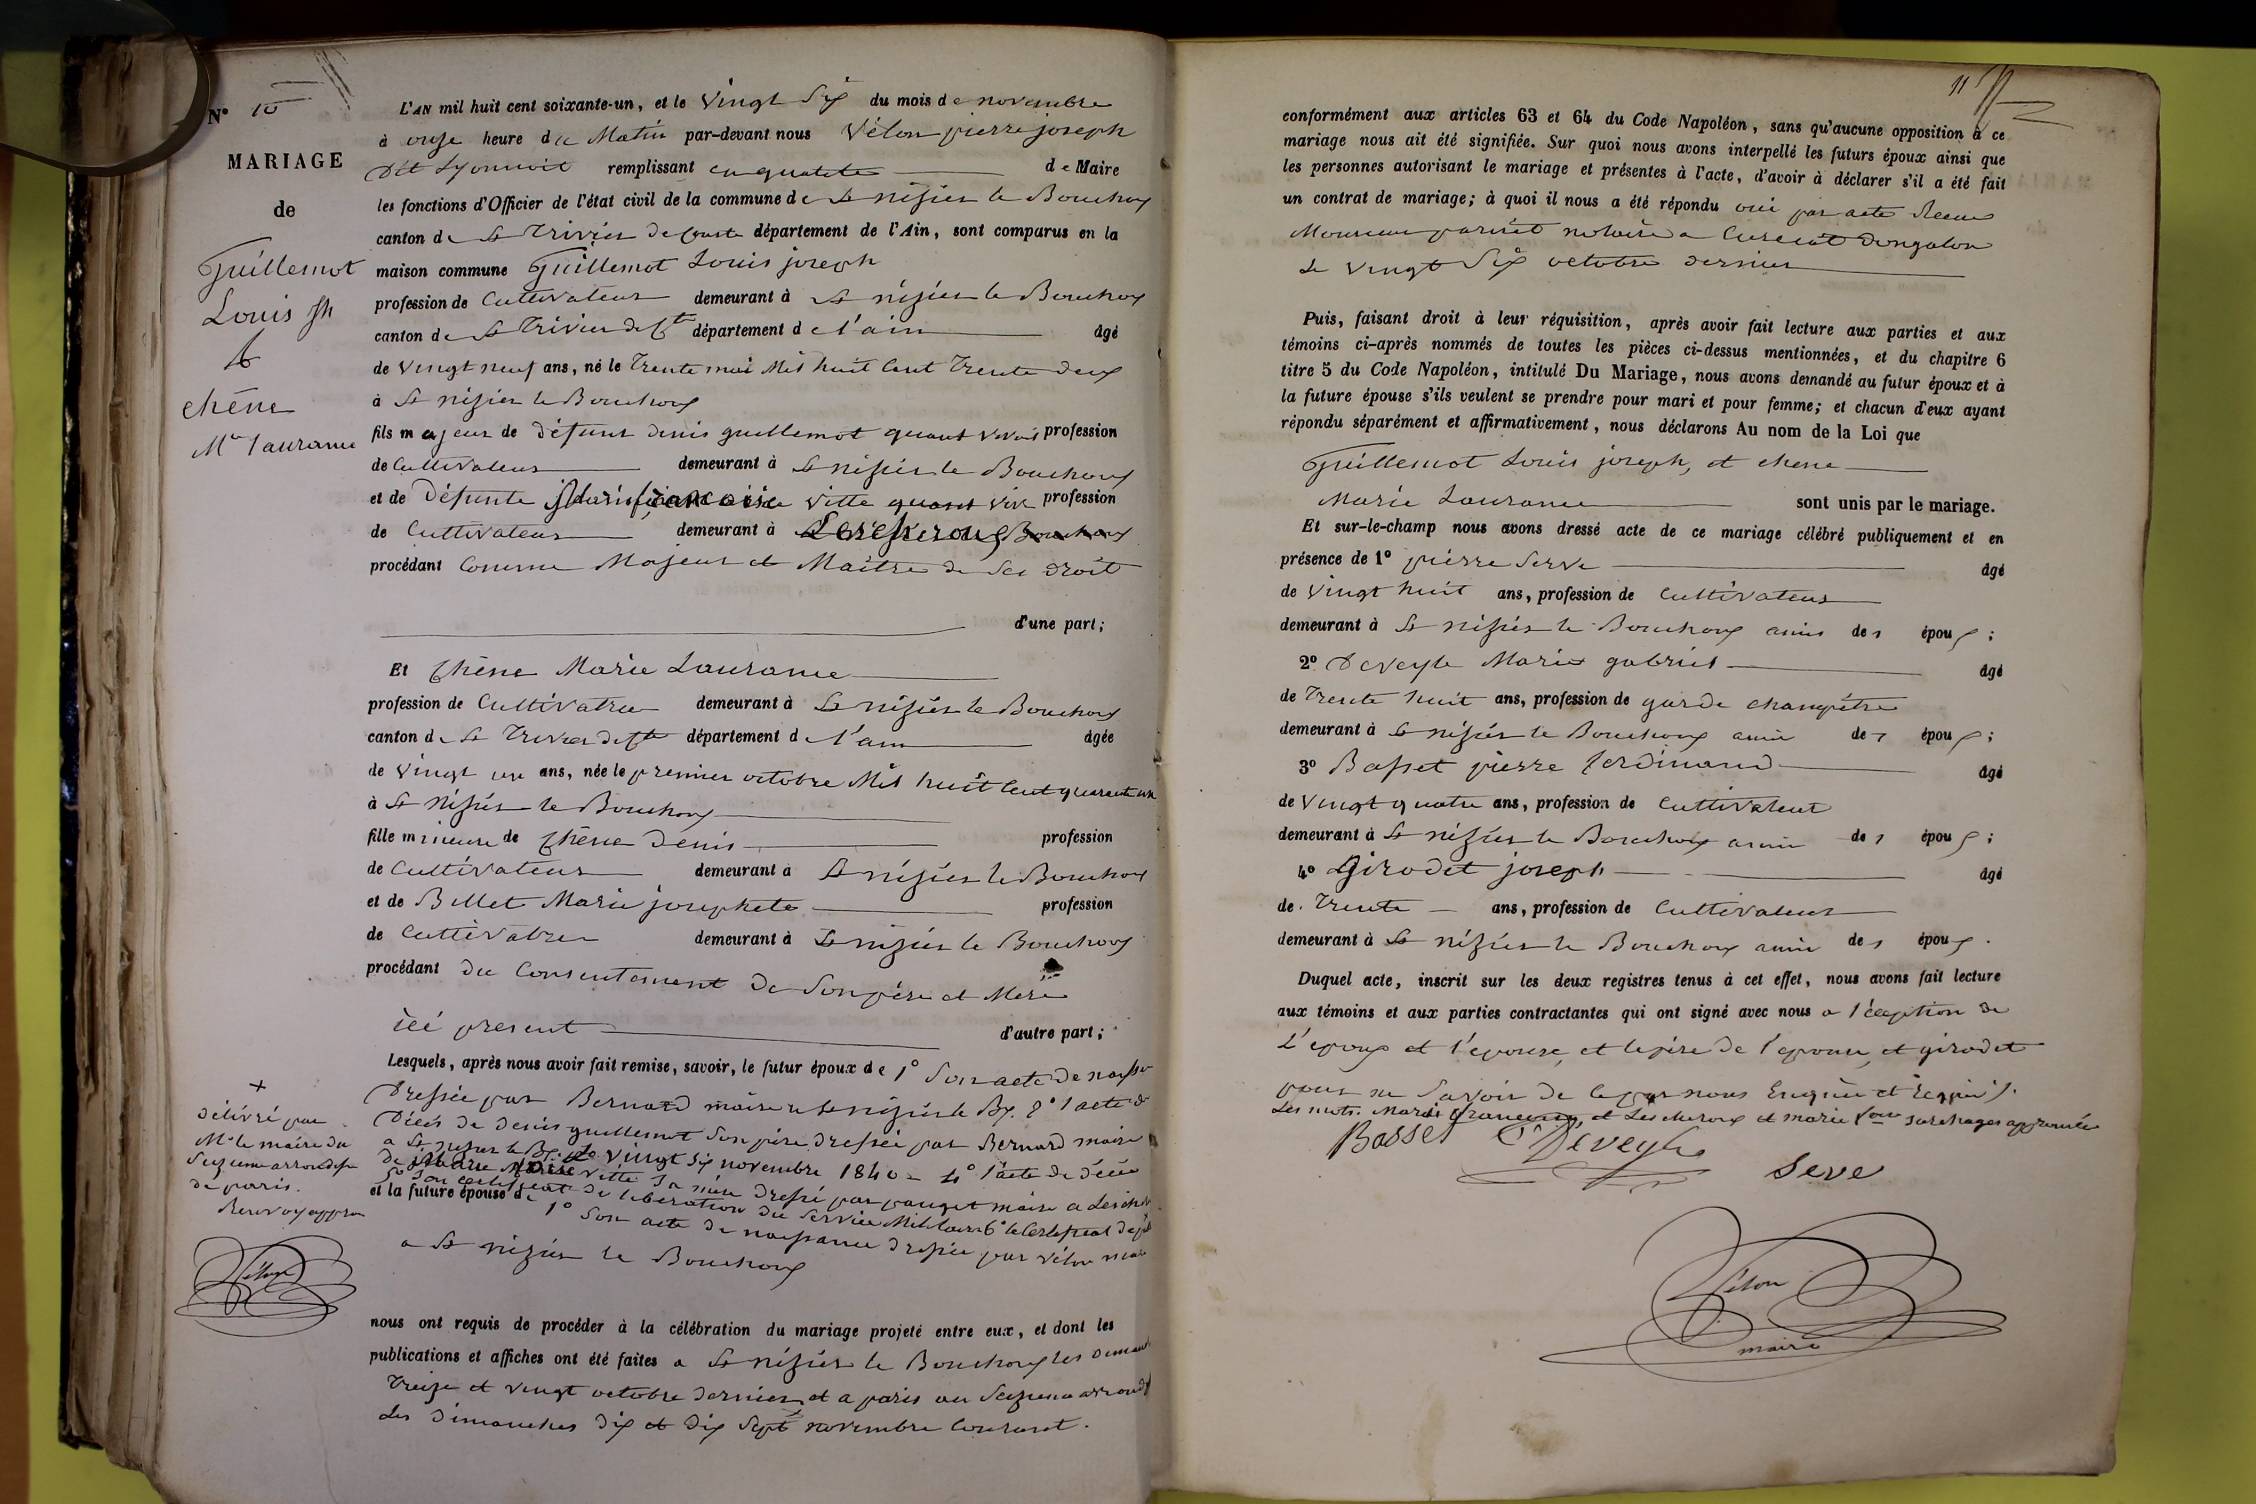 N° 10
MARIAGE
de
Guillemot
Louis jh
&
chêne
Mie Laurance
L'AN mil huit cent soixante-un, et le vingt Six du mois de novembre
à onze heure du Matin par-devant nous Vélon pierre joseph
dit Lyonnois remplissant en qualité de Maire
les fonctions d'Officier de l'état civil de la commune de St nizier le Bouchoux
canton de St Trivier de Courte département de l'Ain, sont comparus en la
maison commune Guillemot Louis joseph
profession de Cultivateur demeurant à St nizier le Bouchoux
canton de St Trivier de Cte département de l'ain âgé
de vingt neuf ans, né le Trente mai Mil huit Cent Trente deux
à St nizier le Bouchoux
fils majeur de défunt denis guillemot quant vivait profession
de Cultivateur demeurant à St nizier le Bouchoux
et de Défunte Marie françoise Vitte quant viv profession
de Cultivateur demeurant à Lescheroux Bouchoux
procédant Comme Majeur et Maitre de Ses droit
d'une part;
Et Chêne Marie Laurance
profession de Cultivatrice demeurant à St nizier le Bouchoux
canton de St Trivier de Cte département de l'ain âgée
de vingt un ans, née le premier octobre Mil huit Cent quarante un
à St Nizier le Bouchoux
fille mineure de Chêne Denis profession
de Cultivateur demeurant à St nizier le Bouchoux
et de Billet Marie josephete profession
de Cultivatrice demeurant à St nizier le Bouchoux
procédant du Consentement de Son père et Mère
ici present d'autre part;
Lesquels, après nous avoir fait remise, savoir, le futur époux de 1° Son acte de naiss
Dressée par Bernard maire a St nizier le Bx. 2° l'acte de
Décés de Denis guillemot Son père dressée par Bernard maire
a St nizier le Bx le vingt Six novembre 1840 = 4° l'acte de décée
de Marie Vitte Sa mère dressé par pauget maire a Lesch
5° Son certificat de libération du Service Militaire 6° le Certificat de p
et la future épouse de 1° Son acte de naissance dressée par vélon maire
a St nizier le Bouchoux
+
délivré par
Mr le maire du
Seizieme arrondisse
de paris.
Renvoy appr
Vélon
nous ont requis de procéder à la célébration du mariage projeté entre eux, et dont les
publications et affiches ont été faites a St nizier le Bouchoux les diman
Treize et vingt octobre dernier et a paris au Seizieme arrond
Les dimanches dix et dix Sept novembre Courant.
11
conformément aux articles 63 et 64 du Code Napoléon, sans qu'aucune opposition à ce
mariage nous ait été signifiée. Sur quoi nous avons interpellé les futurs époux ainsi que
les personnes autorisant le mariage et présentes à l'acte, d'avoir à déclarer s'il a été fait
un contrat de mariage; à quoi il nous a été répondu oui par acte Recue
Monsieur pariset notaire a Curciat dongalon
Le vingt Six octobre dernier
Puis, faisant droit à leur réquisition, après avoir fait lecture aux parties et aux
témoins ci-après nommés de toutes les pièces ci-dessus mentionnées, et du chapitre 6
titre 5 du Code Napoléon, intitulé Du Mariage, nous avons demandé au futur époux et à
la future épouse s'ils veulent se prendre pour mari et pour femme; et chacun d'eux ayant
répondu séparément et affirmativement, nous déclarons Au nom de la Loi que
Guillemot Louis joseph, et chene
Marie Laurance sont unis par le mariage.
Et sur-le-champ nous avons dressé acte de ce mariage célébré publiquement et en
présence de 1° pierre Serve âgé
de vingt huit ans, profession de Cultivateur
demeurant à St nizier le Bouchoux amis des époux;
2° Deveyle Marie gabriel âgé
de Trente huit ans, profession de garde champêtre
demeurant à St nizier le Bouchoux amie des époux;
3° Basset pierre ferdinand âgé
de vingt quatre ans, profession de Cultivateur
demeurant à St nizier le Bouchoux amie des époux;
4° Girodet joseph âgé
de Trente ans, profession de Cultivateur
demeurant à St nizier le Bouchoux amie des époux.
Duquel acte, inscrit sur les deux registres tenus à cet effet, nous avons fait lecture
aux témoins et aux parties contractantes qui ont signé avec nous a l'éxeption de
L'epoux et l'epouse, et le père de l'epouse, et girodet
pour ne Savoir de ce par nous Enquie et Requis.
Les mots. Marie françoise, et Lescheroux et marie surchages approuvée
Basset Deveyle
Seve
Vélon
maire